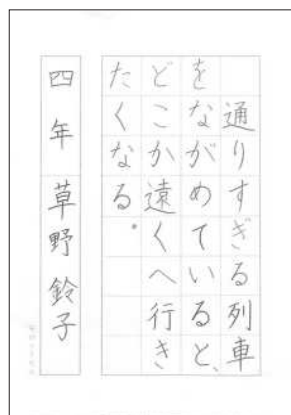 通りすぎる列車
をながめていると、
どこか遠くへ行き
たくなる。
四年 草野鈴子